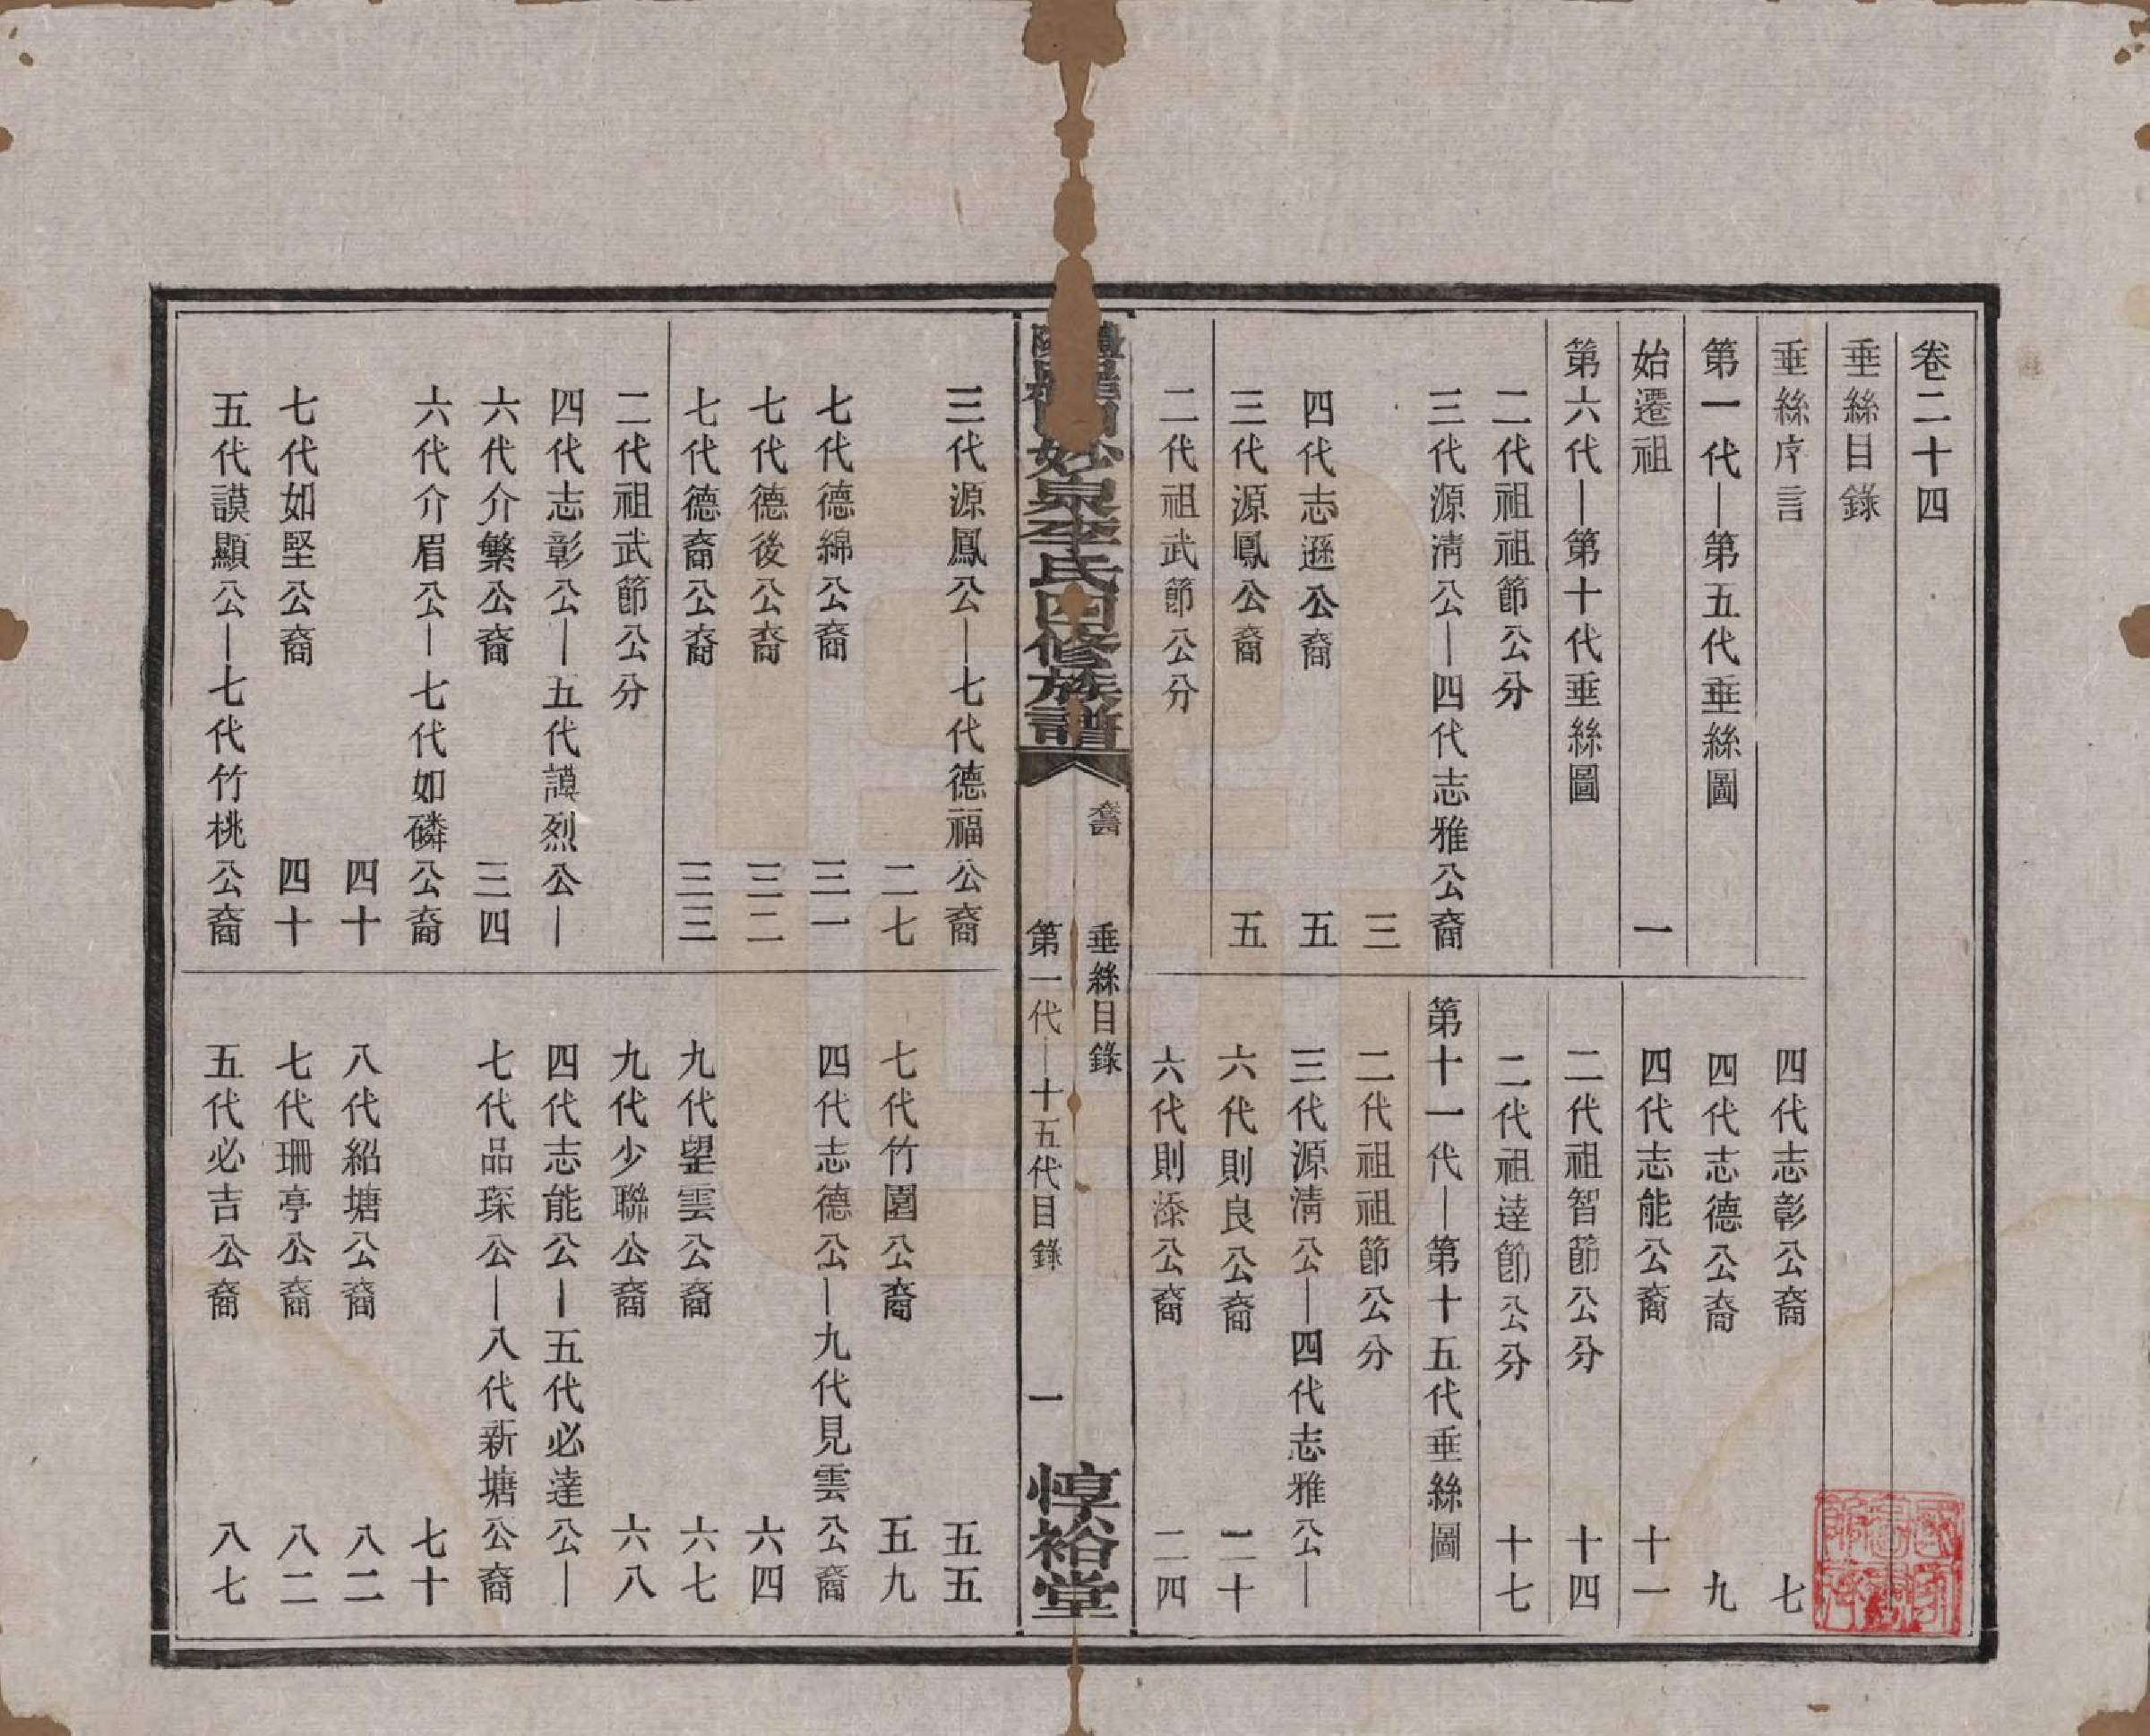 卷二十四
垂絲目錄
垂絲序言
第一代—第五代垂絲圖
始遷祖 一
第六代—第十代垂絲圖
二代祖祖節公分
三代源淸公—四代志雅公裔
三
四代志遜公裔 五
三代源鳳公裔 五
二代祖武節公分
四代志彰公裔 七
四代志德公裔 九
四代志能公裔 十一
二代祖智節公分 十四
二代祖達節公分 十七
第十一代—第十五代垂絲圖
二代祖祖節公分
三代源淸公—四代志雅公—
六代則良公裔 二十
六代則添公裔 二四
妙泉李氏四修族譜
垂絲目錄
第一代—十五代目錄
一
惇裕堂
三代源鳳公—七代德福公裔
二七
七代德綿公裔 三一
七代德後公裔 三二
七代德裔公裔 三三
二代祖武節公分
四代志彰公—五代謨烈公—
六代介繁公裔 三四
六代介眉公—七代如磷公裔
四十
七代如堅公裔 四十
五代謨顯公—七代竹桃公裔
五五
七代竹園公裔 五九
四代志德公—九代見雲公裔
六四
九代望雲公裔 六七
九代少聯公裔 六八
四代志能公—五代必達公—
七代品琛公—八代新塘公裔
七十
八代紹塘公裔 八二
七代珊亭公裔 八二
五代必吉公裔 八七